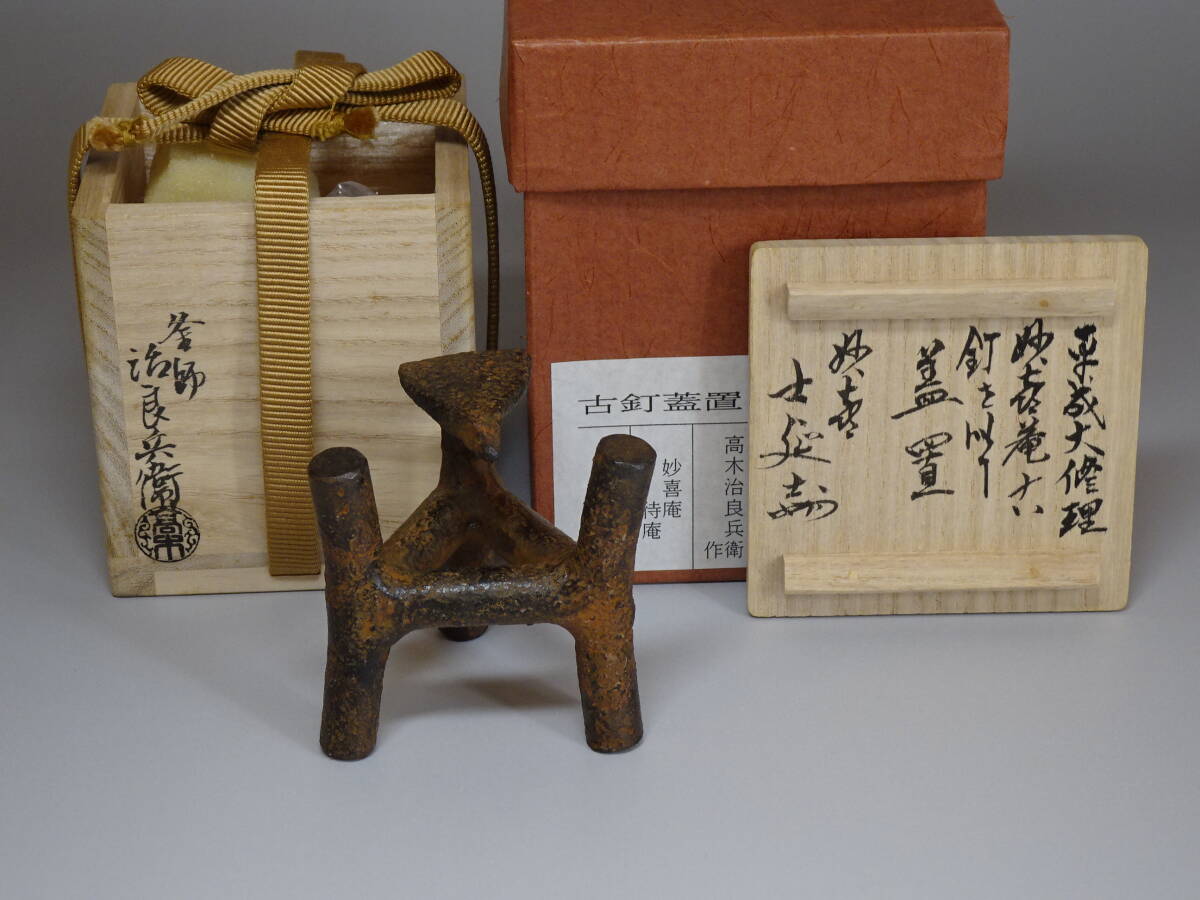 釜師
治良兵衛
古釘蓋置
高木治良兵衛
作
妙喜庵
待庵
平成大修理
妙喜庵古い
釘を以て
蓋置
妙喜